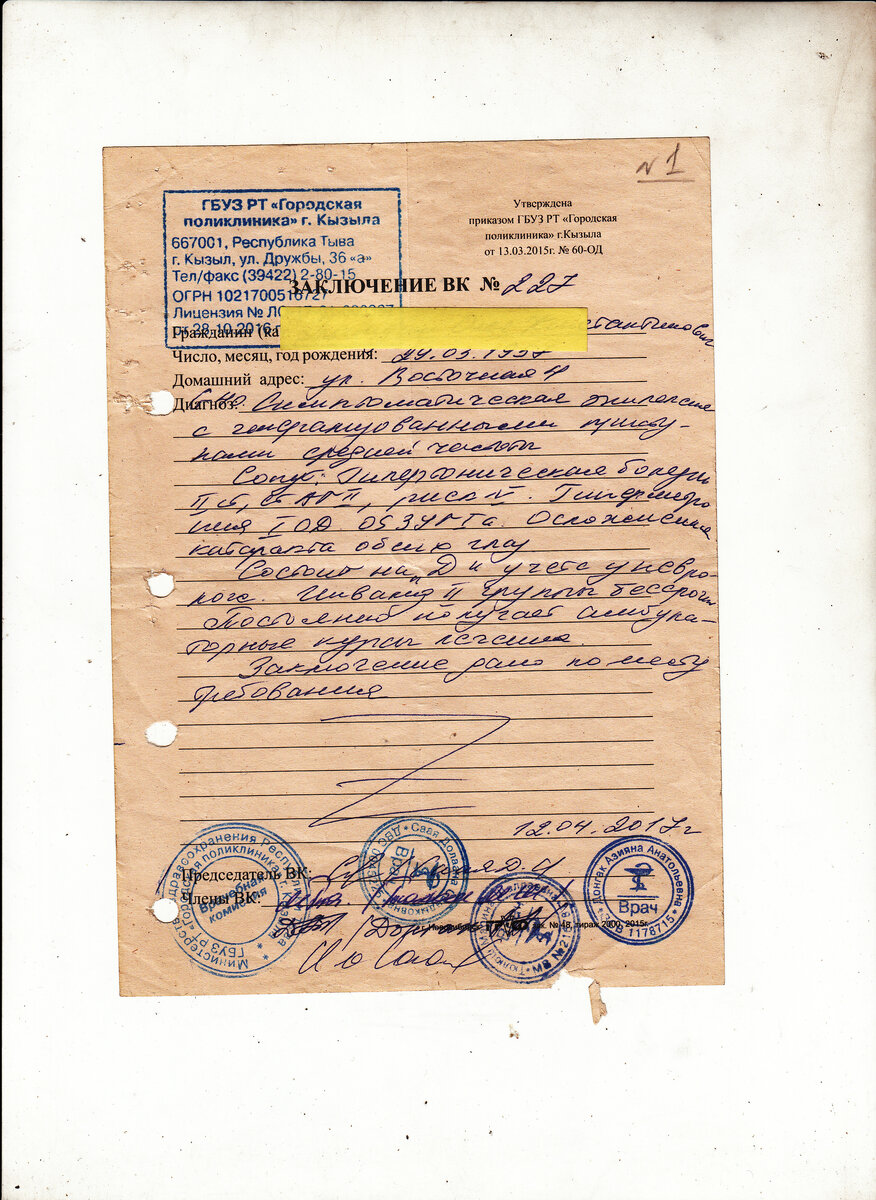 N 1
ГБУЗ РТ «Городская
поликлиника» г. Кызыла
667001, Республика Тыва
г. Кызыл, ул. Дружбы, 36 «а»
Тел/факс (39422) 2-80-15
ОГРН 1021700516727
Лицензия № ЛО
от 28.10.2016 г
Утверждена
приказом ГБУЗ РТ «Городская
поликлиника» г.Кызыла
от 13.03.2015г. № 60-ОД
ЗАКЛЮЧЕНИЕ ВК № 227
Гражданин (ка
Число, месяц, год рождения: 29.03.1957
Домашний адрес: ул. Восточная 4
Диагноз: Симптоматическая эпилепсия
с генерализованными присту-
пами средней частоты
Сопут: Гипертоническая болезнь
II ст, ст АГ II, риск IV.
Осложненная
катаракта обоих глаз
Состоит на "Д" учете у невро-
лога. Инвалид II группы бессрочно
Постоянно получает амбула-
торные курсы лечения.
Заключение дано по месту
требования
12.04.2017г
Председатель ВК:
Члены ВК:
Министерство здравоохранения Республики Тыва
ГБУЗ РТ «Городская поликлиника г. Кызыла»
Врачебная
комиссия
Саая Долаана
Врач
Донгак Азияна Анатольевна
Врач
В 1178715
зак. № 48, тираж 2000, 2015г.